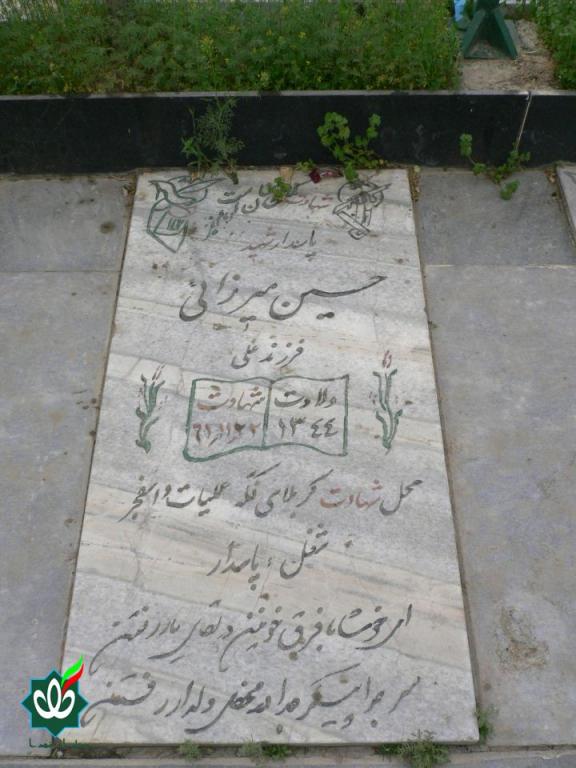 شهادت
پاسدار شهید
حسین میرزائی
فرزند علی
ولادت ۱۳۴۴
شهادت ۶۱/۱۱/۲۲
محل شهادت کربلای فکه عملیات والفجر
شغل : پاسدار
ای خوشا با فرق خونین در لقای یار رفتن
سر جدا پیکر جدا در محفل دلدار رفتن